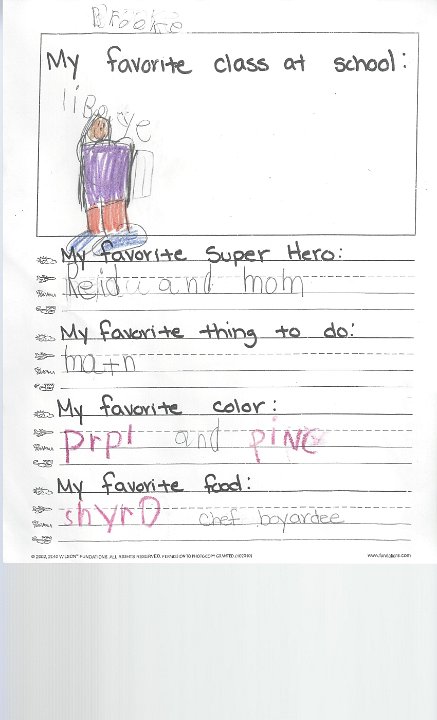 Brooke
My favorite class at school:
liBrarye
My favorite Super Hero:
Reid and mom
My favorite thing to do:
math
My favorite color:
prpl and pinc
My favorite food:
shyrD chef boyardee
© 2002, 2010 WILSON FUNDATIONS. ALL RIGHTS RESERVED. PERMISSION TO PHOTOCOPY GRANTED.
www.fundations.com